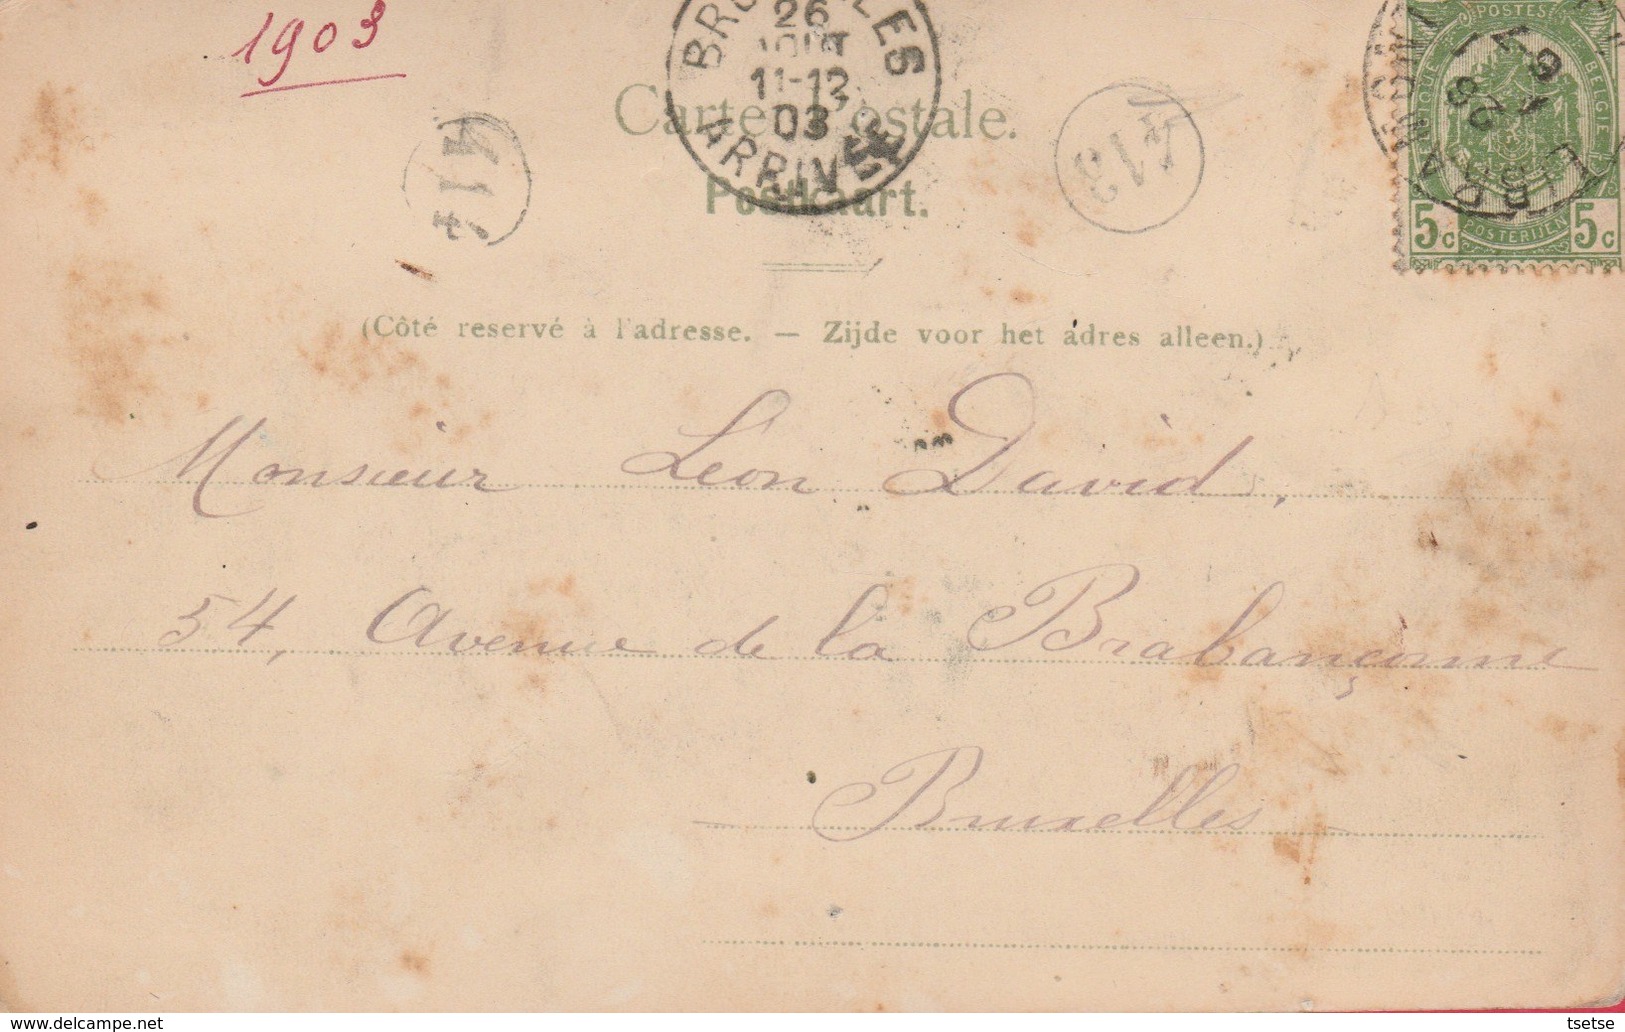 1903
BRUXELLES
26
AOUT
11-12
03
ARRIVÉE
Carte Postale.
Postkaart.
POSTES
BELGIQUE
BELGIE
5c POSTERIJEN 5c
413
(Côté reservé à l'adresse. — Zijde voor het adres alleen.)
Monsieur Léon David,
54, Avenue de la Brabançonne
Bruxelles
tsetse